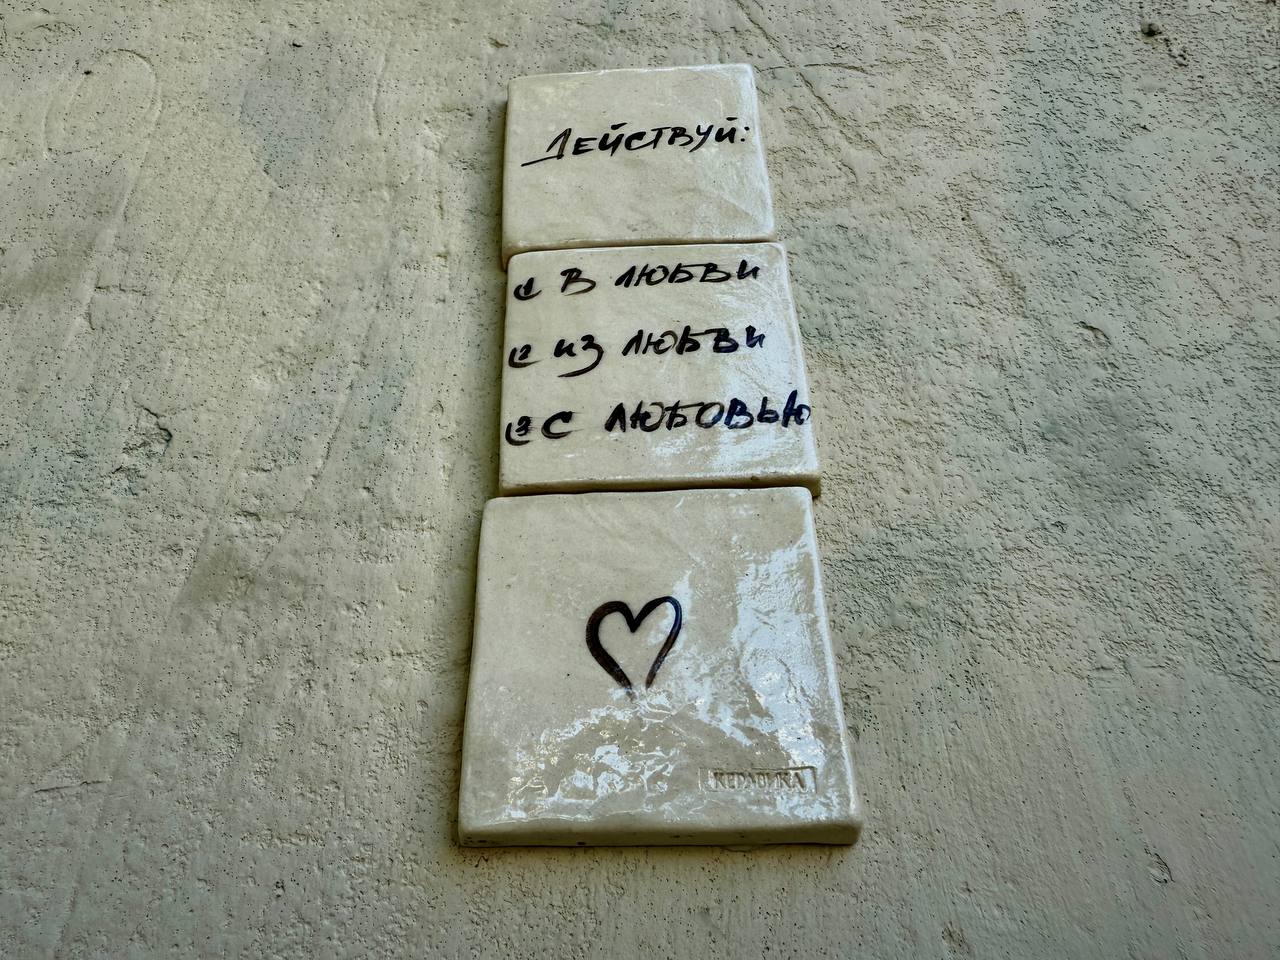 Действуй:
1 в любви
2 из любви
3 с любовью
КЕРАВИКА